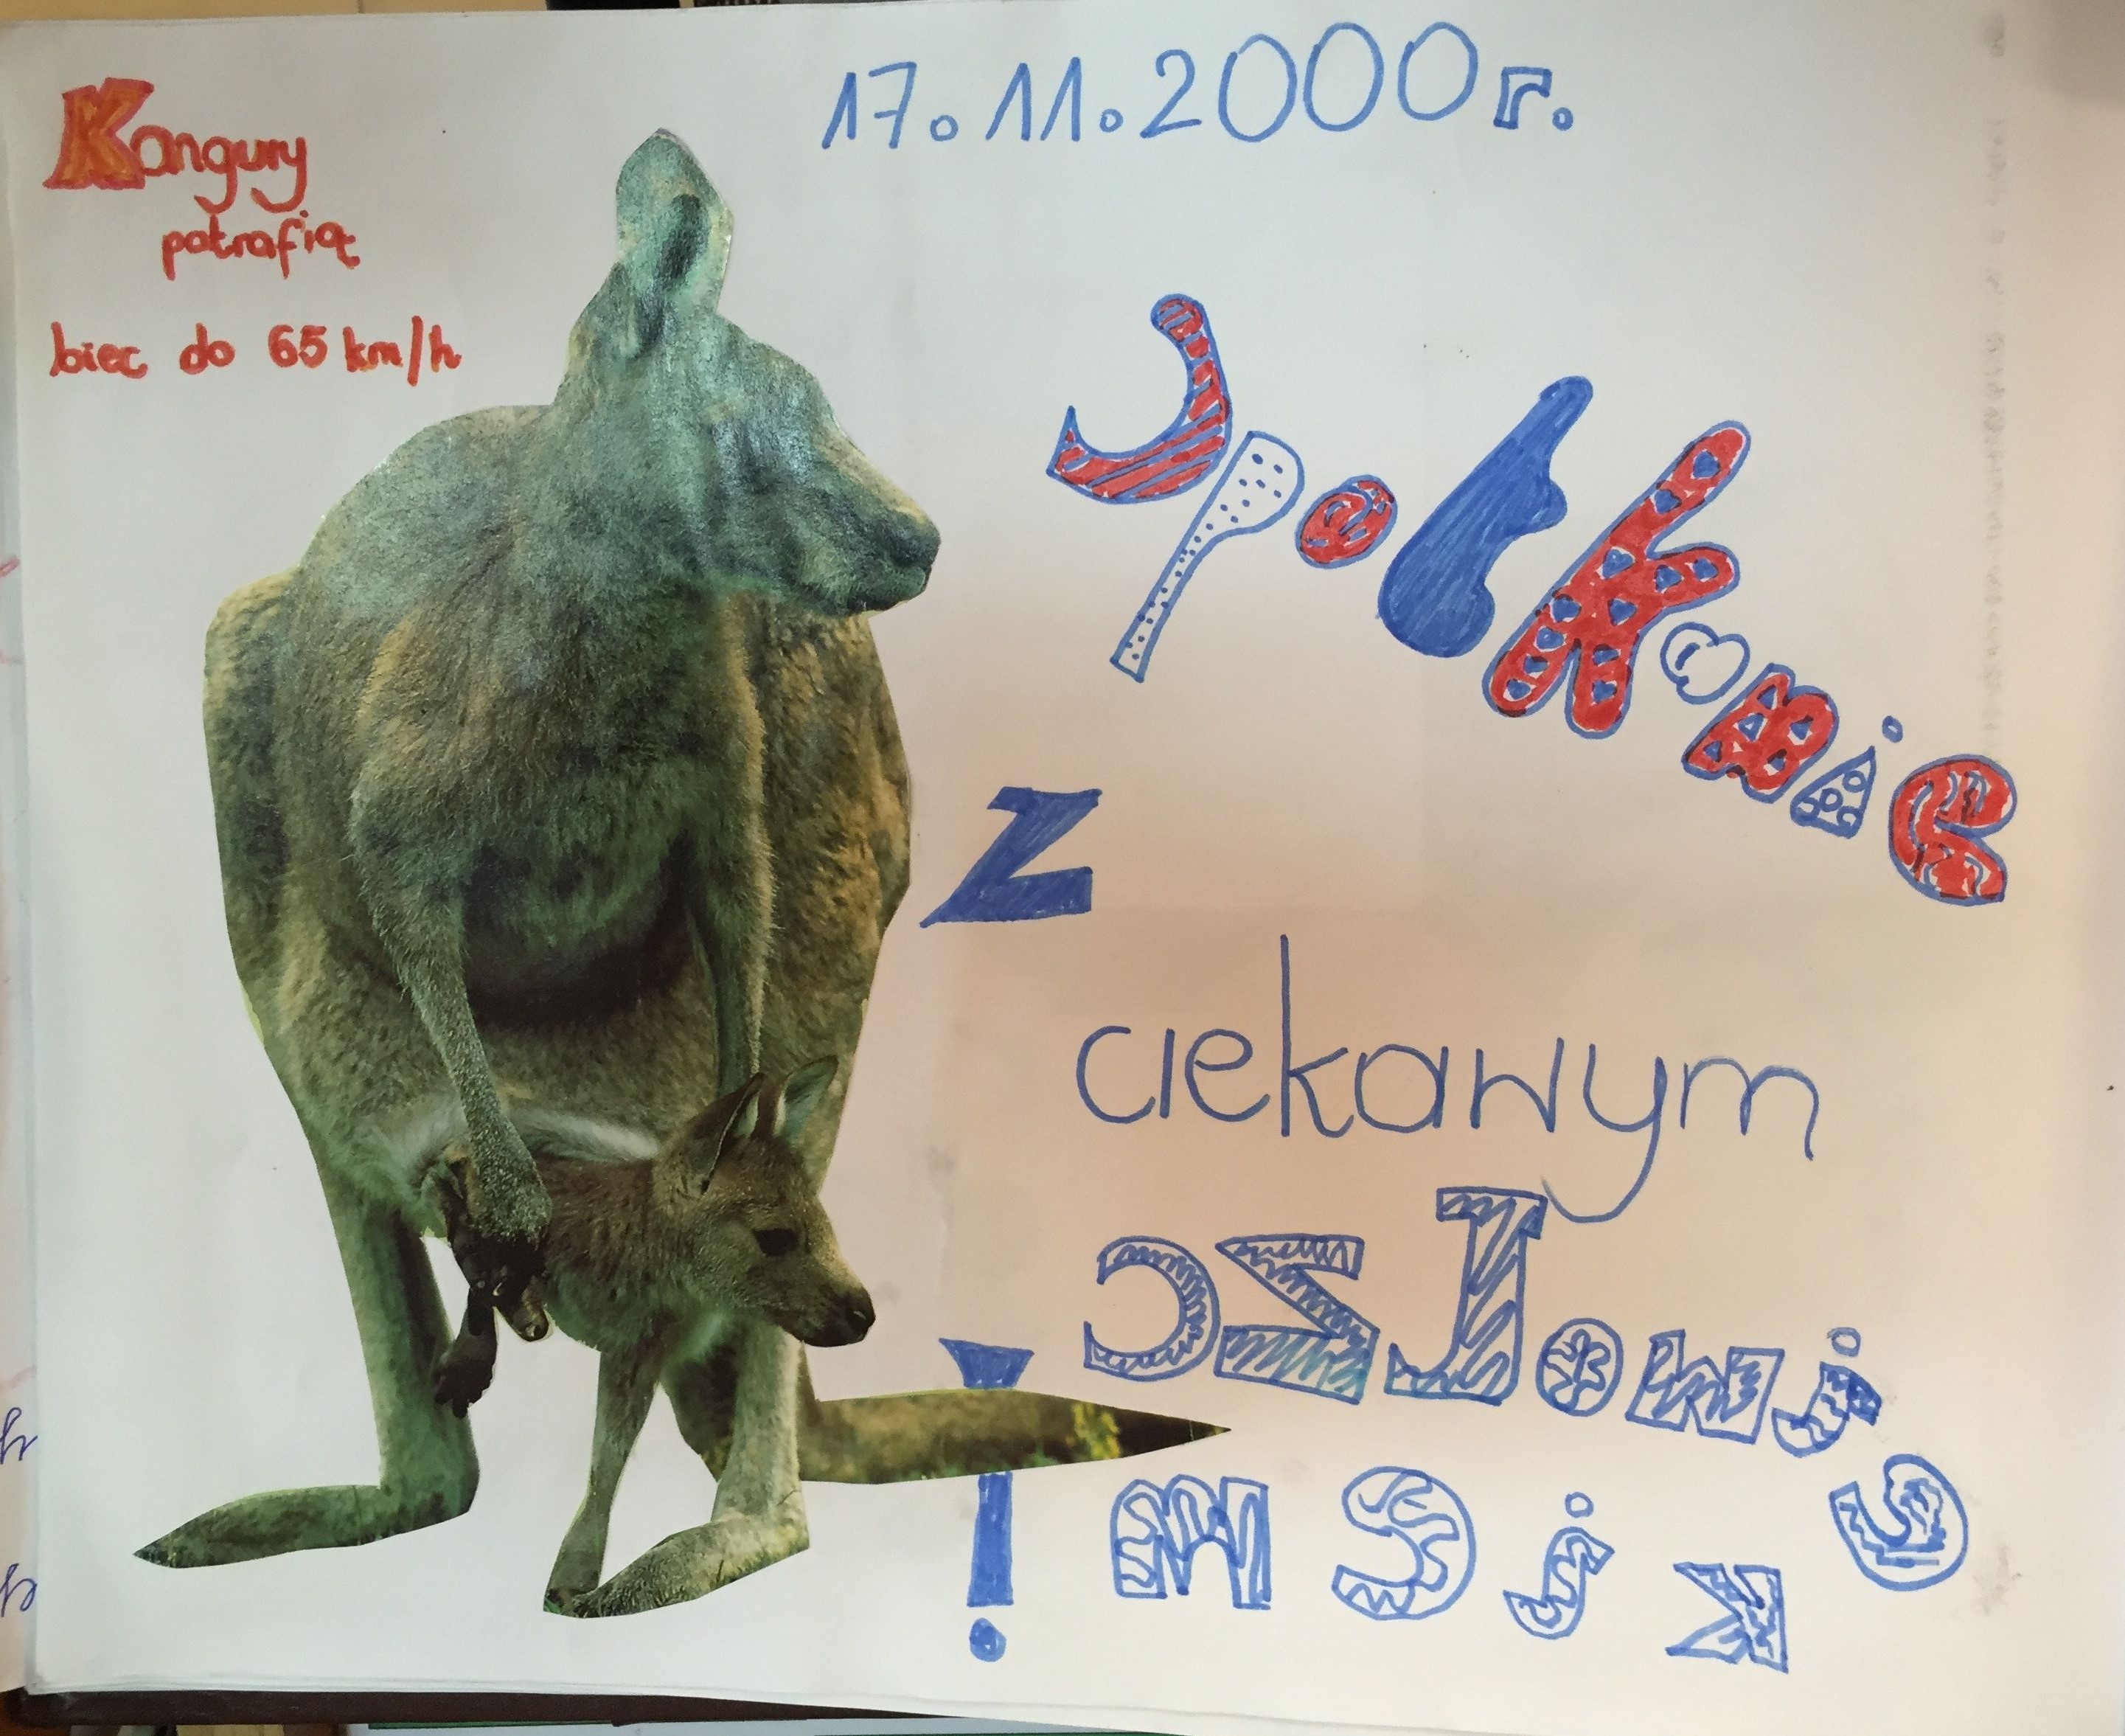 17.11.2000r.
Kangury
potrafią
biec do 65 km/h
Spotkanie
z
ciekawym
człowi
ekiem!